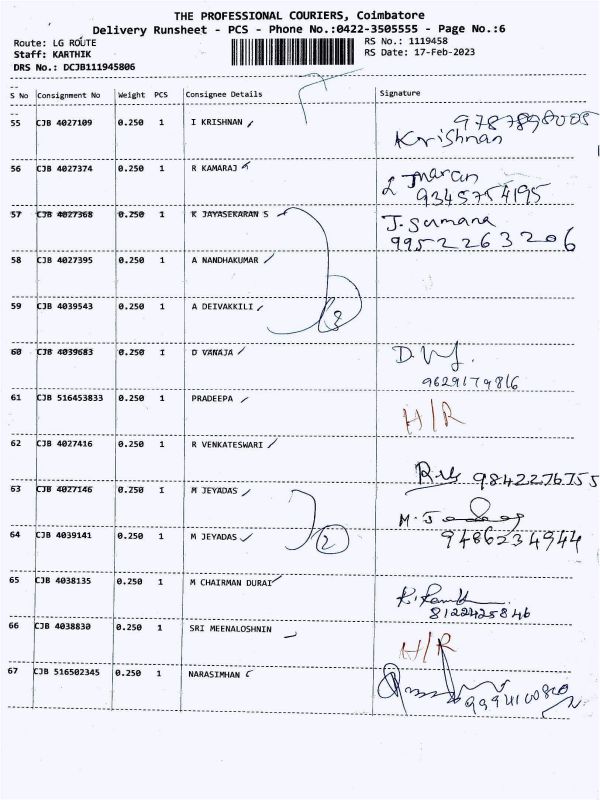 THE PROFESSIONAL COURIERS, Coimbatore
Delivery Runsheet - PCS - Phone No.:0422-3505555 - Page No.:6
Route: LG ROUTE RS No.: 1119458
Staff: KARTHIK RS Date: 17-Feb-2023
DRS No.: DCJB111945806
S No Consignment No Weight PCS Consignee Details Signature
55 CJB 4027109 0.250 1 I KRISHNAN 9787898005
Krishnan
56 CJB 4027374 0.250 1 R KAMARAJ L Maran
9345754195
57 CJB 4027368 0.250 1 K JAYASEKARAN S J. Sumana
9952263206
58 CJB 4027395 0.250 1 A NANDHAKUMAR
59 CJB 4039543 0.250 1 A DEIVAKKILI 3
60 CJB 4039683 0.250 1 D VANAJA
9629179816
61 CJB 516453833 0.250 1 PRADEEPA H/R
62 CJB 4027416 0.250 1 R VENKATESWARI
9842276755
63 CJB 4027146 0.250 1 M JEYADAS
64 CJB 4039141 0.250 1 M JEYADAS 2 9486234944
65 CJB 4038135 0.250 1 M CHAIRMAN DURAI
8122425846
66 CJB 4038830 0.250 1 SRI MEENALOSHNIN H/R
67 CJB 516502345 0.250 1 NARASIMHAN